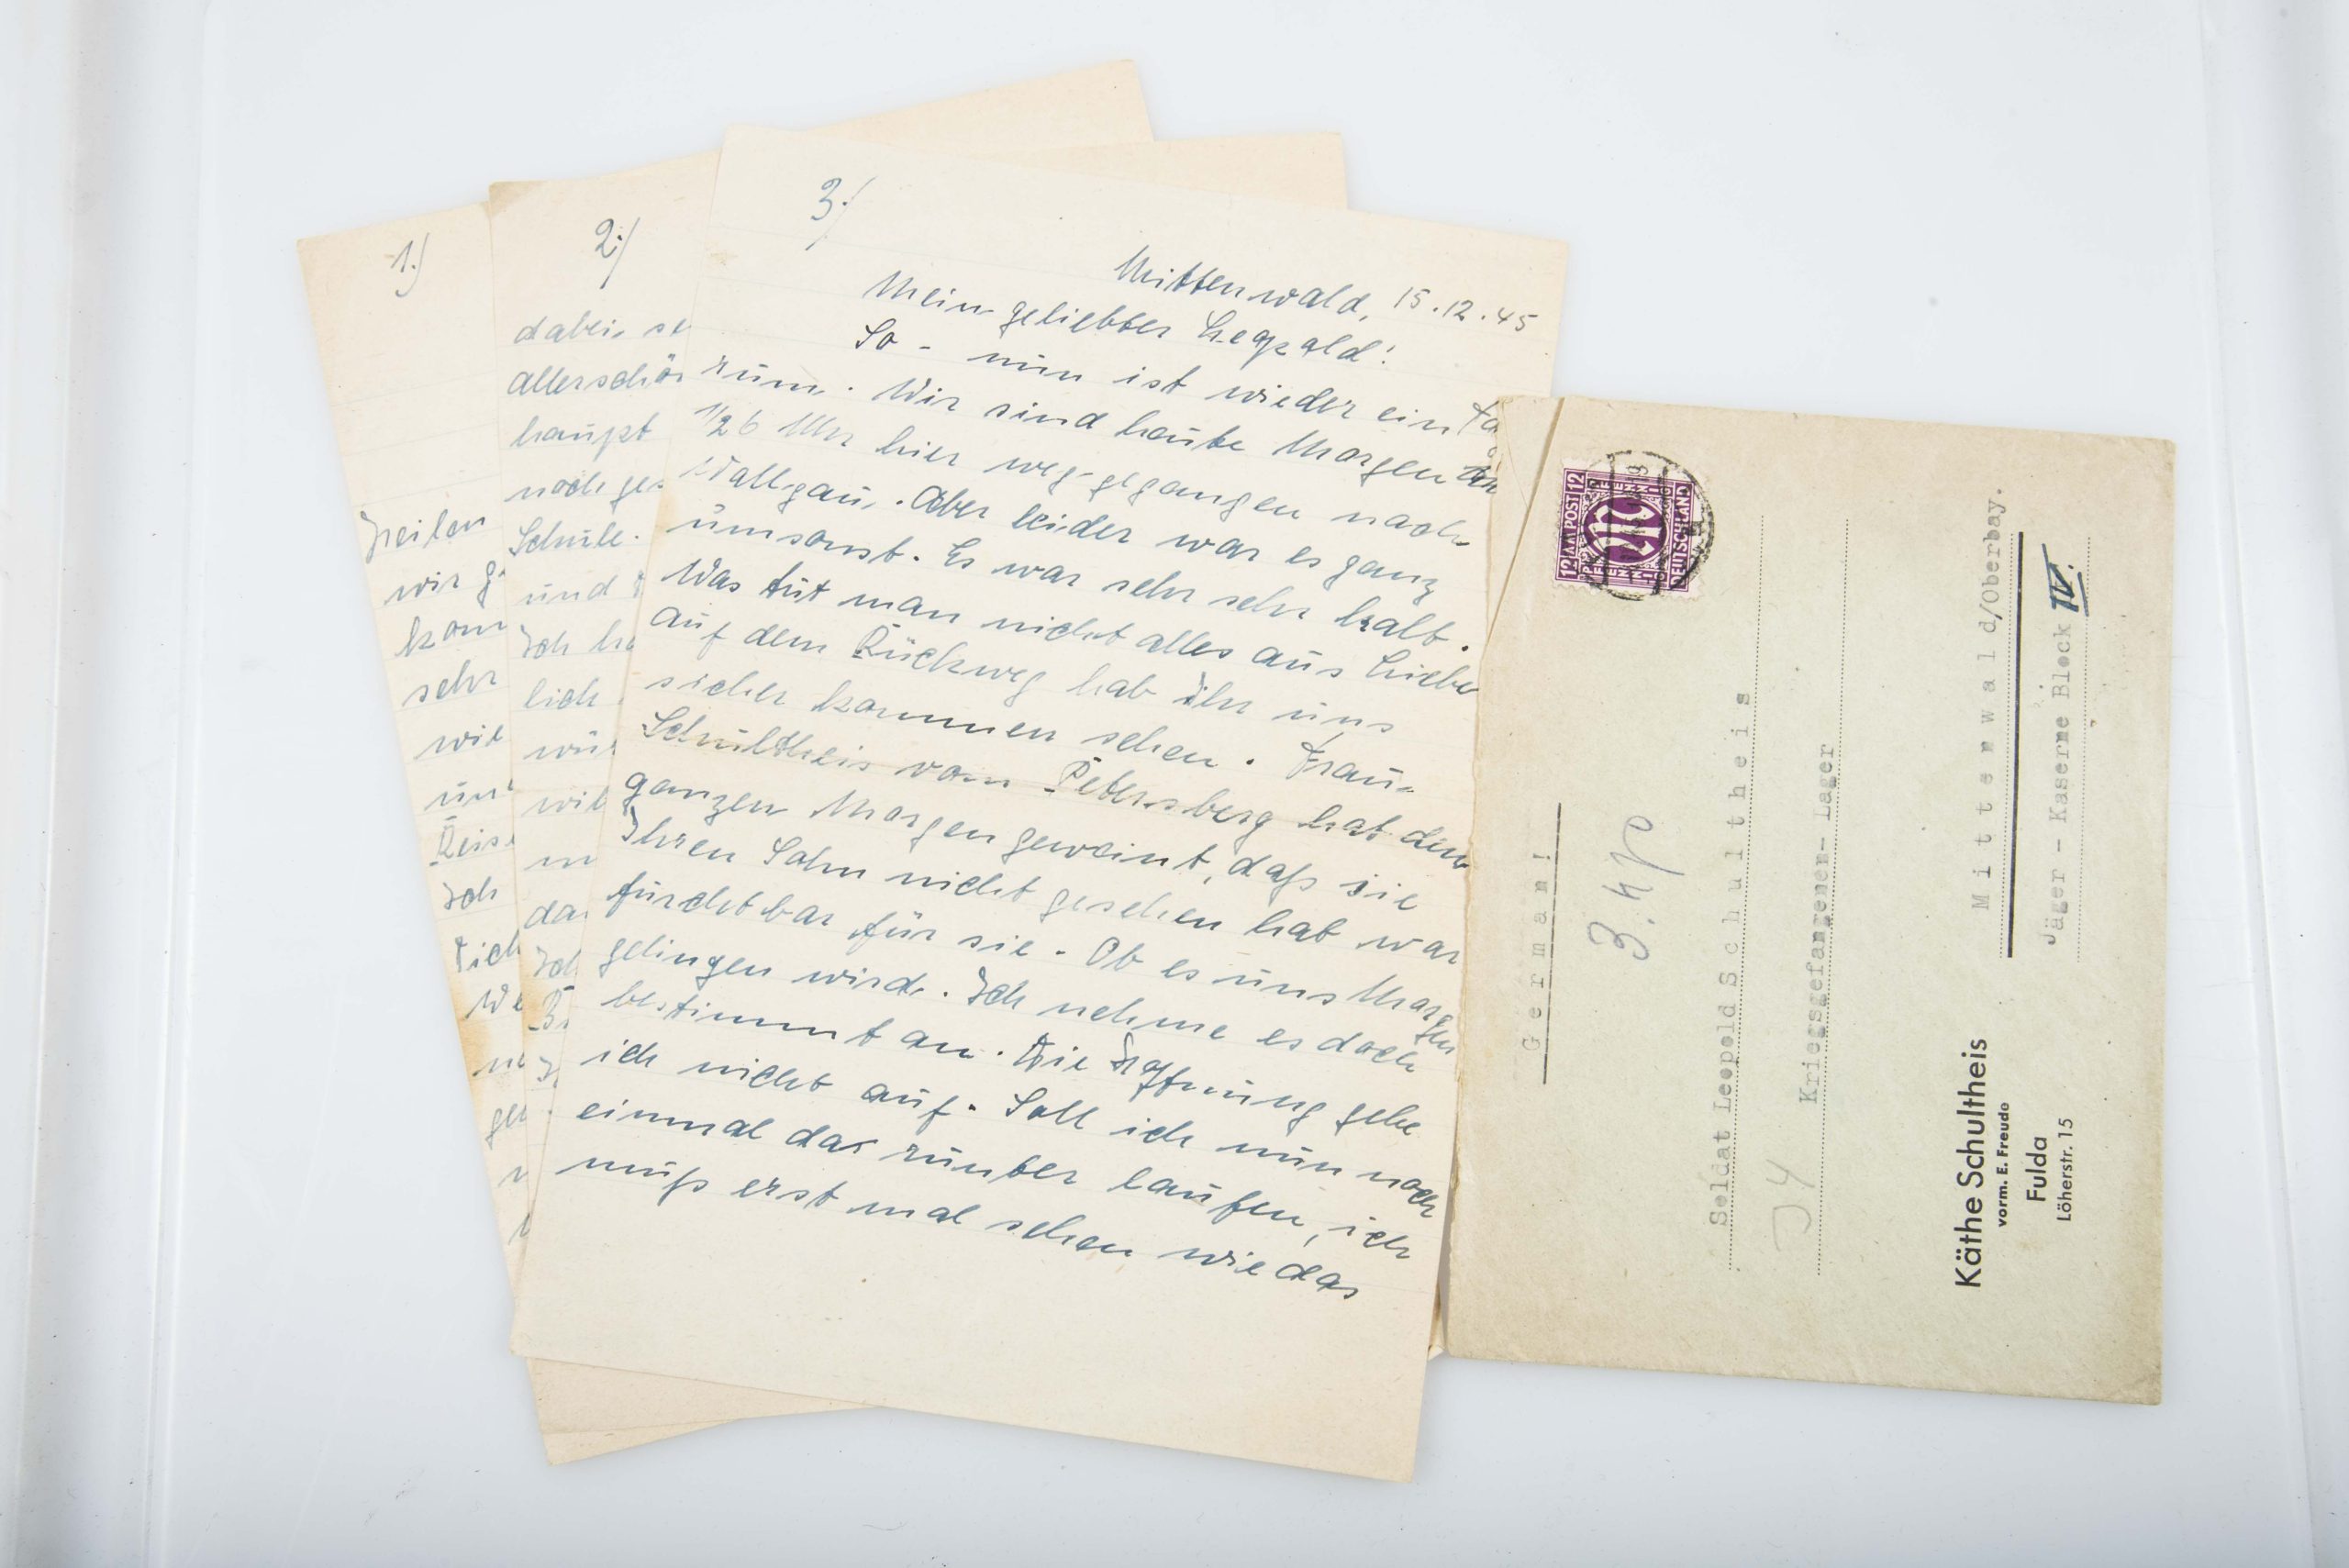 1.)
Zeilen
wir g
kom
sehr
wie
und
Reis
Ich
Dich
We
ge
2.)
dabei, se
allerschön
haupt
noch ges
Schule.
und
Ich ha
lich
wür
wie
m
das
Ich
3.)
Mittenwald, 15.12.45
Mein geliebter Leopold!
So - nun ist wieder ein Tag
rum. Wir sind heute Morgen um
1/26 Uhr hier weg-gegangen nach
Wallgau. Aber leider war es ganz
umsonst. Es war sehr sehr kalt.
Was tut man nicht alles aus Liebe
auf dem Rückweg hab ihr uns
sicher kommen sehen. Frau
Schultheis vom Petersberg hat den
ganzen Morgen geweint, daß sie
Ihren Sohn nicht gesehen hat war
furchtbar für sie. Ob es uns Morgen
gelingen wird. Ich nehme es doch
bestimmt an. Die Hoffnung gebe
ich nicht auf. Soll ich nun noch
einmal das runter laufen, ich
muß erst mal sehen wie das
12 AM POST 12
DEUTSCHLAND
German!
Soldat Leopold Schultheis
Kriegsgefangenen-Lager
Mittenwald/Oberbay.
Jäger - Kaserne Block IV.
Käthe Schultheis
vorm. E. Freudo
Fulda
Löherstr. 15